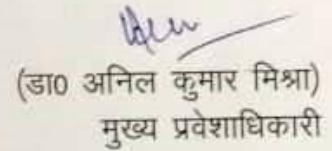 (डा0 अनिल कुमार मिश्रा)
मुख्य प्रवेशाधिकारी